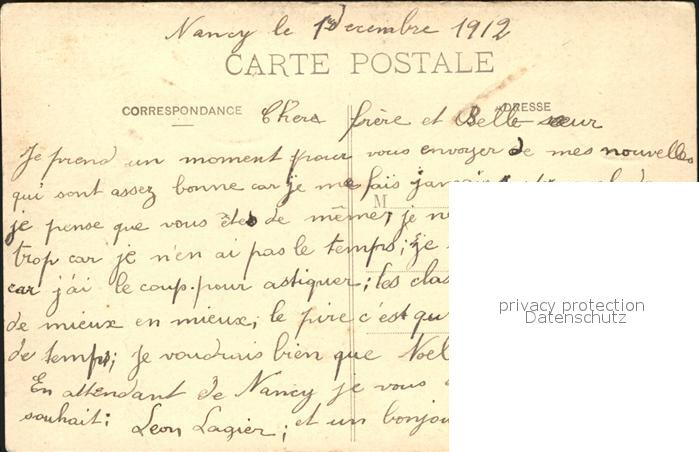 Nancy le 1er Decembre 1912
CARTE POSTALE
CORRESPONDANCE
ADRESSE
Chers frère et Belle sœur
Je prend un moment pour vous envoyer de mes nouvelles
qui sont assez bonne car je me fais jamais
M
je pense que vous êtes de même, je n
trop car je n'en ai pas le temps; je
car j'ai le coup pour astiquer; les clas
de mieux en mieux; le pire c'est qu
de temps; Je voudrais bien que Noel
En attendant de Nancy je vous
souhait: Leon Lagier; et un bonjou
privacy protection
Datenschutz